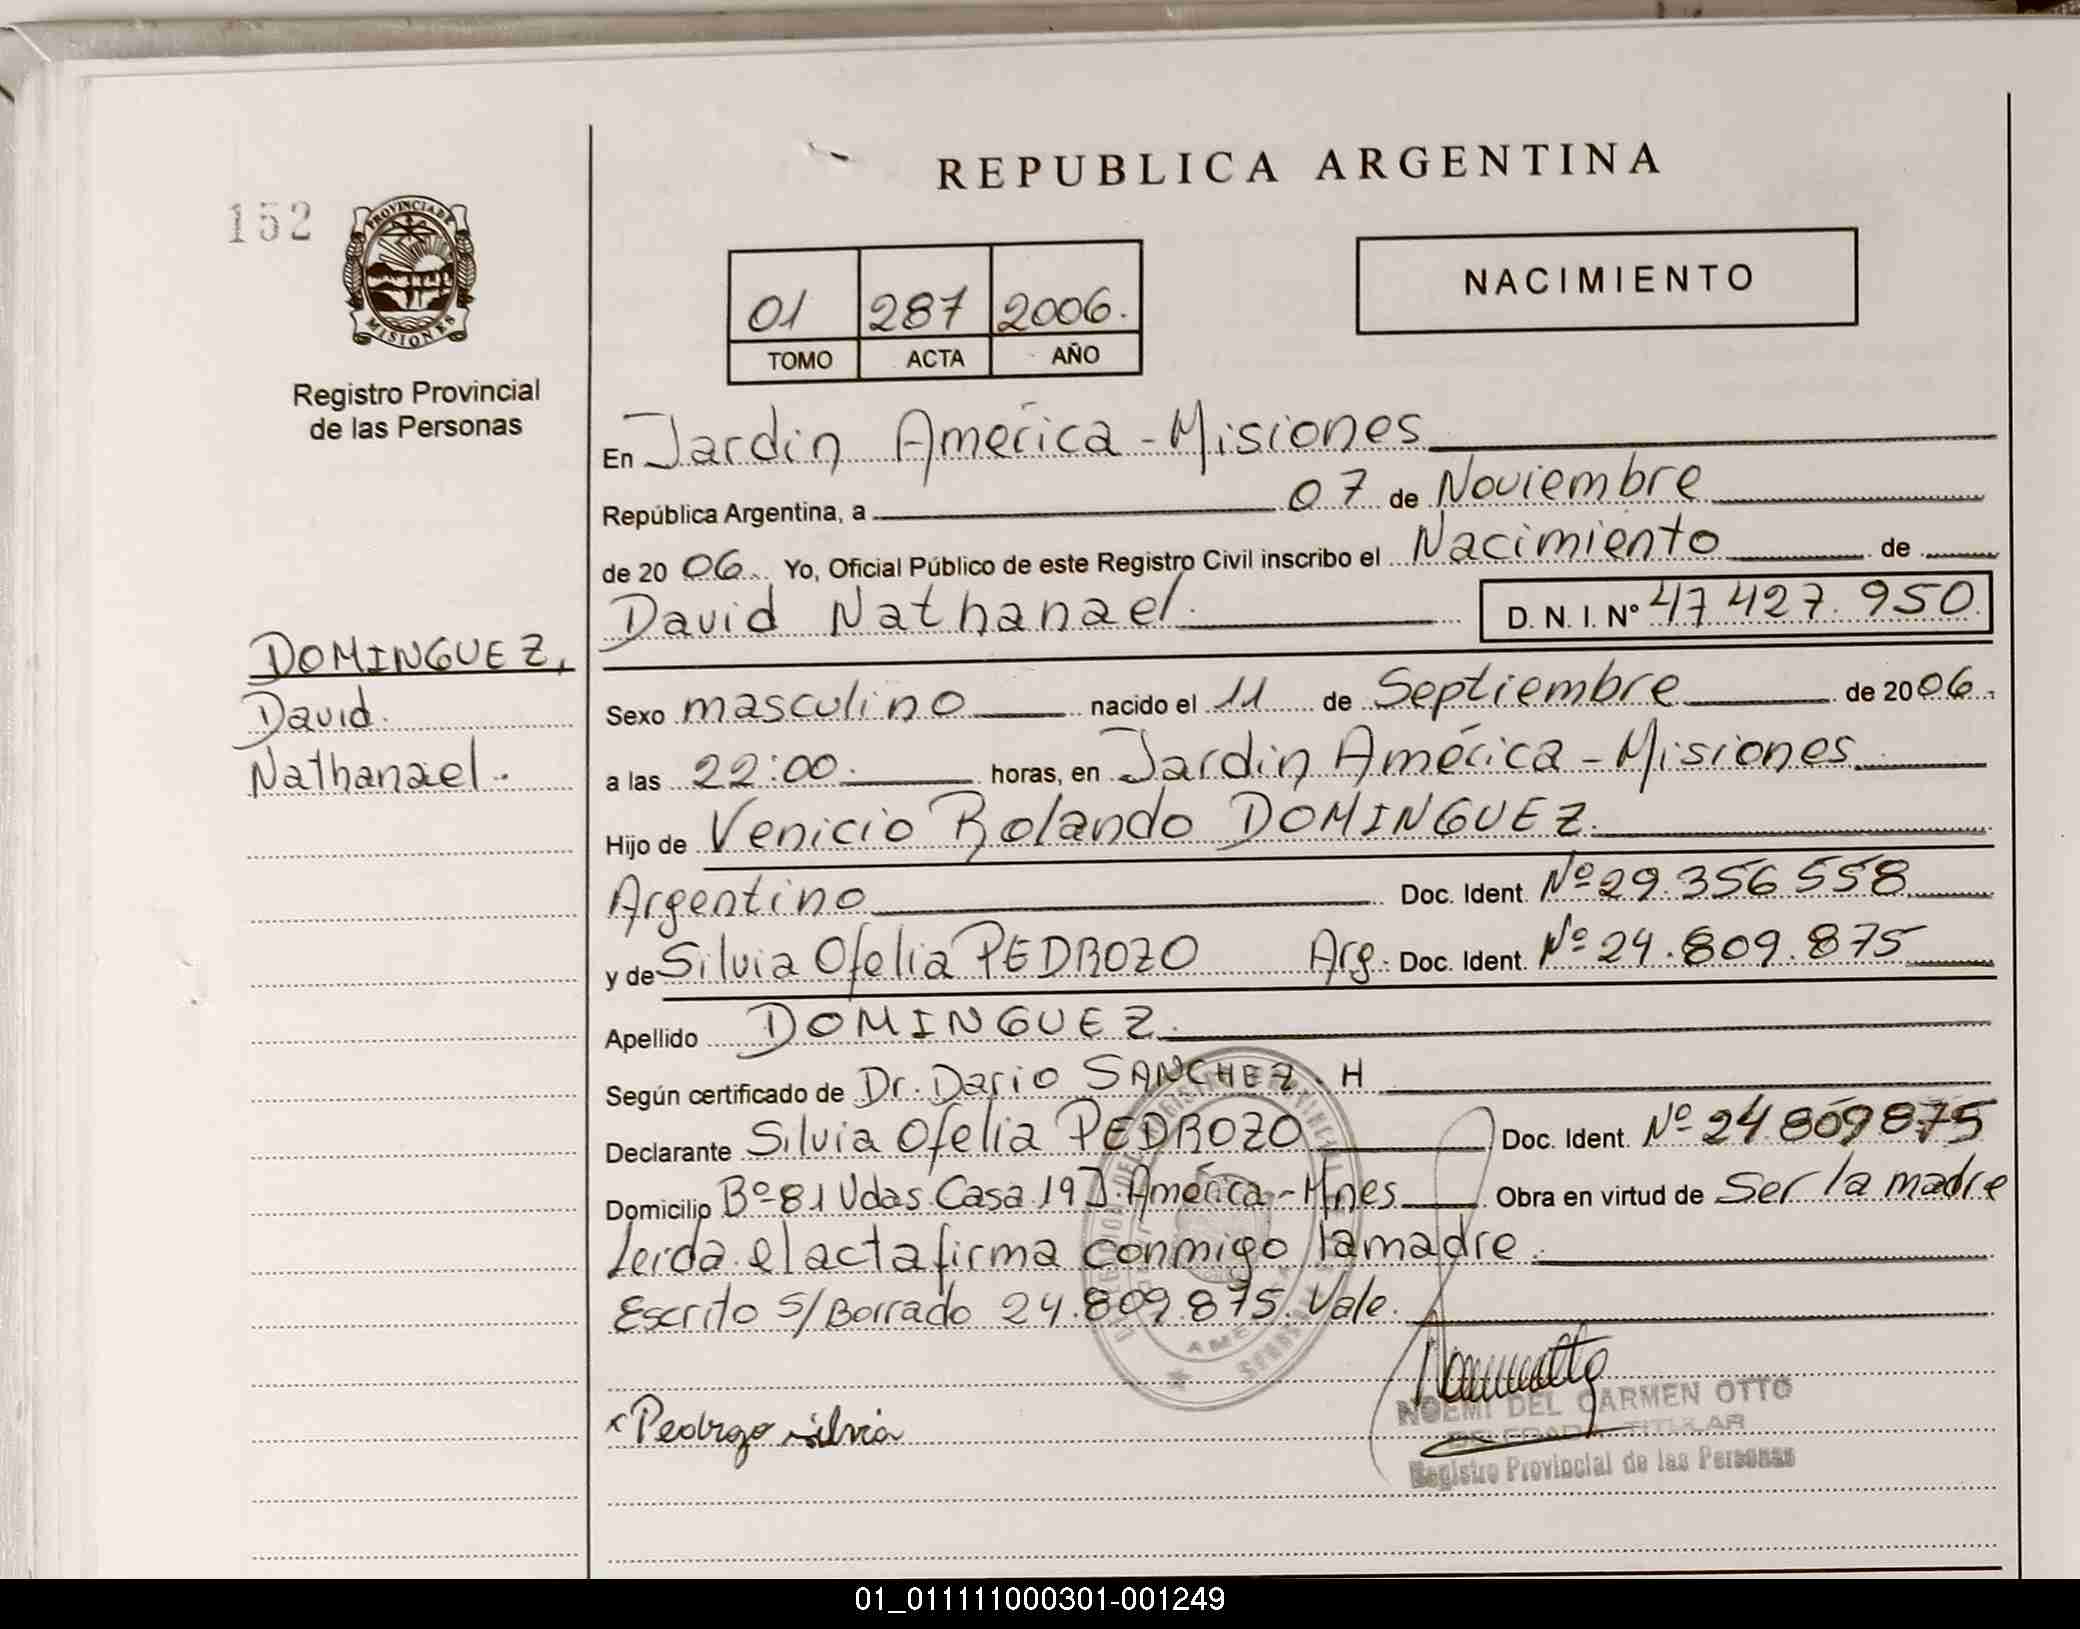 REPUBLICA ARGENTINA
152
PROVINCIA DE
MISIONES
Registro Provincial
de las Personas
NACIMIENTO
01 287 2006.
TOMO ACTA AÑO
En Jardin América - Misiones
República Argentina, a 07 de Noviembre
de 2006. Yo, Oficial Público de este Registro Civil inscribo el Nacimiento de
David Nathanael. D. N. I. Nº 47 427. 950.
DOMINGUEZ,
David
Nathanael.
Sexo masculino nacido el 11 de Septiembre de 2006.
a las 22:00. horas, en Jardin América - Misiones
Hijo de Venicio Rolando DOMINGUEZ.
Argentino Doc. Ident. Nº 29.356.558
y de Silvia Ofelia PEDROZO Arg. Doc. Ident. Nº 24.809.875
Apellido DOMINGUEZ.
Según certificado de Dr. Dario SANCHEZ. H
Declarante Silvia Ofelia PEDROZO Doc. Ident. Nº 24.809875
Domicilio Bº 81 Vdas. Casa 19 J. América - Mnes Obra en virtud de Ser la madre
Leida el acta firma conmigo la madre.
Escrito S/ Borrado 24.809.875. Vale.
x Pedrozo silvia
NOEMI DEL CARMEN OTTO
DELEGADA TITULAR
Registro Provincial de las Personas
01_011111000301-001249